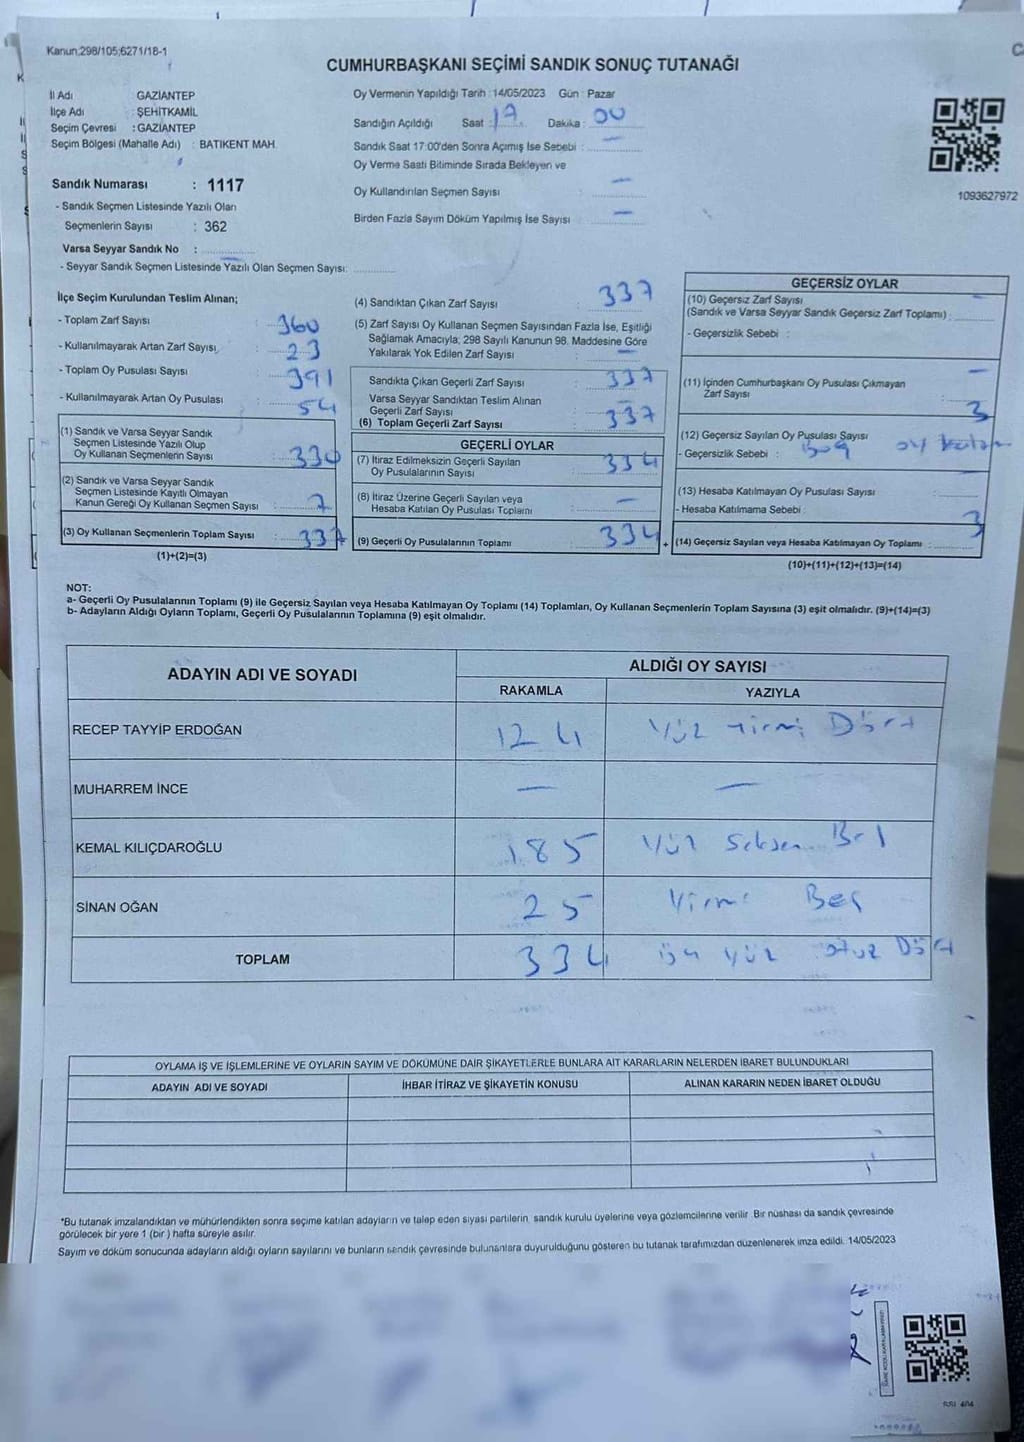 Kanun;298/105;6271/18-1
CUMHURBAŞKANI SEÇİMİ SANDIK SONUÇ TUTANAĞI
İl Adı GAZİANTEP
İlçe Adı : ŞEHİTKAMİL
Seçim Çevresi : GAZİANTEP
Seçim Bölgesi (Mahalle Adı) : BATIKENT MAH.
Sandık Numarası : 1117
- Sandık Seçmen Listesinde Yazılı Olan
Seçmenlerin Sayısı : 362
Varsa Seyyar Sandık No :
- Seyyar Sandık Seçmen Listesinde Yazılı Olan Seçmen Sayısı:
Oy Vermenin Yapıldığı Tarih :14/05/2023 Gün : Pazar
Sandığın Açıldığı Saat : 17 Dakika : 00
Sandık Saat 17:00'den Sonra Açımış İse Sebebi : —
Oy Verme Saati Bitiminde Sırada Bekleyen ve
Oy Kullandırılan Seçmen Sayısı : —
Birden Fazla Sayım Döküm Yapılmış İse Sayısı : —
1093627972
İlçe Seçim Kurulundan Teslim Alınan;
- Toplam Zarf Sayısı : 360
- Kullanılmayarak Artan Zarf Sayısı : 23
- Toplam Oy Pusulası Sayısı : 391
- Kullanılmayarak Artan Oy Pusulası : 54
(1) Sandık ve Varsa Seyyar Sandık
Seçmen Listesinde Yazılı Olup
Oy Kullanan Seçmenlerin Sayısı : 330
(2) Sandık ve Varsa Seyyar Sandık
Seçmen Listesinde Kayıtlı Olmayan
Kanun Gereği Oy Kullanan Seçmen Sayısı : 7
(3) Oy Kullanan Seçmenlerin Toplam Sayısı : 337
(1)+(2)=(3)
(4) Sandıktan Çıkan Zarf Sayısı : 337
(5) Zarf Sayısı Oy Kullanan Seçmen Sayısından Fazla İse, Eşitliği
Sağlamak Amacıyla; 298 Sayılı Kanunun 98. Maddesine Göre
Yakılarak Yok Edilen Zarf Sayısı : —
Sandıkta Çıkan Geçerli Zarf Sayısı : 337
Varsa Seyyar Sandıktan Teslim Alınan
Geçerli Zarf Sayısı
(6) Toplam Geçerli Zarf Sayısı : 337
GEÇERLİ OYLAR
(7) İtiraz Edilmeksizin Geçerli Sayılan
Oy Pusulalarının Sayısı : 334
(8) İtiraz Üzerine Geçerli Sayılan veya
Hesaba Katılan Oy Pusulası Toplamı : —
(9) Geçerli Oy Pusulalarının Toplamı : 334
+
GEÇERSİZ OYLAR
(10) Geçersiz Zarf Sayısı
(Sandık ve Varsa Seyyar Sandık Geçersiz Zarf Toplamı) : —
- Geçersizlik Sebebi :
(11) İçinden Cumhurbaşkanı Oy Pusulası Çıkmayan
Zarf Sayısı : —
(12) Geçersiz Sayılan Oy Pusulası Sayısı : 3
- Geçersizlik Sebebi : Boş oy
(13) Hesaba Katılmayan Oy Pusulası Sayısı : —
- Hesaba Katılmama Sebebi :
(14) Geçersiz Sayılan veya Hesaba Katılmayan Oy Toplamı : 3
(10)+(11)+(12)+(13)=(14)
NOT:
a- Geçerli Oy Pusulalarının Toplamı (9) ile Geçersiz Sayılan veya Hesaba Katılmayan Oy Toplamı (14) Toplamları, Oy Kullanan Seçmenlerin Toplam Sayısına (3) eşit olmalıdır. (9)+(14)=(3)
b- Adayların Aldığı Oyların Toplamı, Geçerli Oy Pusulalarının Toplamına (9) eşit olmalıdır.
ADAYIN ADI VE SOYADI ALDIĞI OY SAYISI
RAKAMLA YAZIYLA
RECEP TAYYİP ERDOĞAN 124 Yüz Yirmi Dört
MUHARREM İNCE — —
KEMAL KILIÇDAROĞLU 185 Yüz Seksen Beş
SİNAN OĞAN 25 Yirmi Beş
TOPLAM 334 üç yüz otuz Dört
OYLAMA İŞ VE İŞLEMLERİNE VE OYLARIN SAYIM VE DÖKÜMÜNE DAİR ŞİKAYETLERLE BUNLARA AİT KARARLARIN NELERDEN İBARET BULUNDUKLARI
ADAYIN ADI VE SOYADI İHBAR İTİRAZ VE ŞİKAYETİN KONUSU ALINAN KARARIN NEDEN İBARET OLDUĞU
*Bu tutanak imzalandıktan ve mühürlendikten sonra seçime katılan adayların ve talep eden siyasi partilerin, sandık kurulu üyelerine veya gözlemcilerine verilir. Bir nüshası da sandık çevresinde
görülecek bir yere 1 (bir) hafta süreyle asılır.
Sayım ve döküm sonucunda adayların aldığı oyların sayılarını ve bunların sandık çevresinde bulunanlara duyurulduğunu gösteren bu tutanak tarafımızdan düzenlenerek imza edildi. 14/05/2023